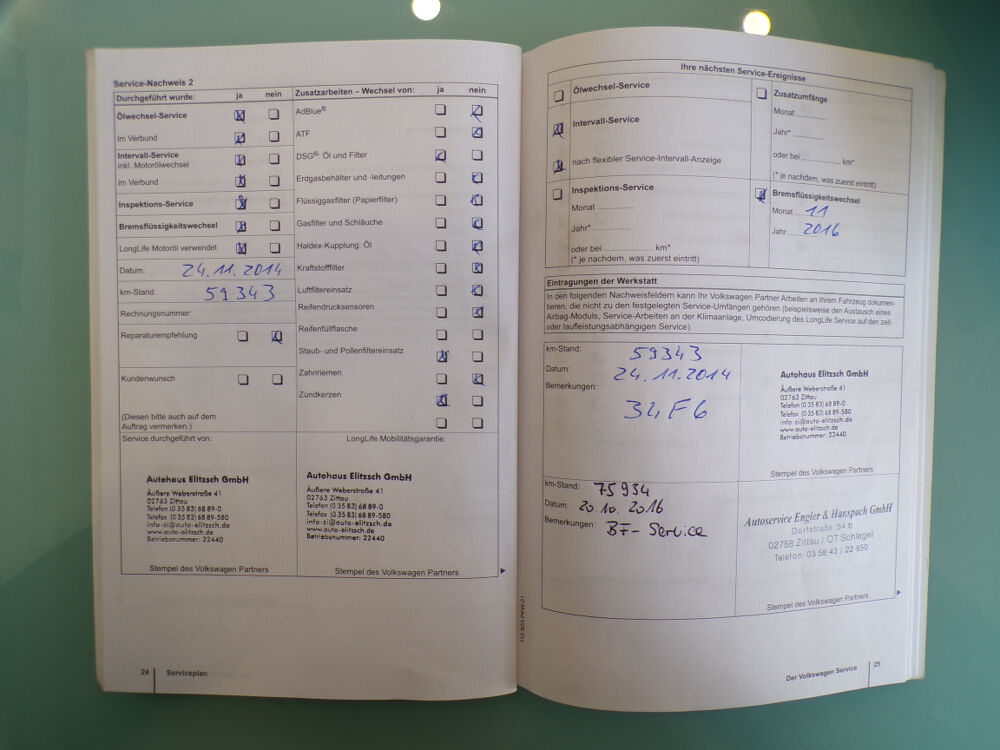 Service-Nachweis 2
Durchgeführt wurde: ja nein
Ölwechsel-Service
im Verbund
Intervall-Service
inkl. Motorölwechsel
im Verbund
Inspektions-Service
Bremsflüssigkeitswechsel
LongLife Motoröl verwendet
Datum: 24.11.2014
km-Stand: 59343
Rechnungsnummer:
Reparaturempfehlung
Kundenwunsch
(Diesen bitte auch auf dem
Auftrag vermerken.)
Zusatzarbeiten – Wechsel von: ja nein
AdBlue®
ATF
DSG®: Öl und Filter
Erdgasbehälter und -leitungen
Flüssiggasfilter (Papierfilter)
Gasfilter und Schläuche
Haldex-Kupplung: Öl
Kraftstofffilter
Luftfiltereinsatz
Reifendrucksensoren
Reifenfüllflasche
Staub- und Pollenfiltereinsatz
Zahnriemen
Zündkerzen
Service durchgeführt von:
Autohaus Elitzsch GmbH
Äußere Weberstraße 41
02763 Zittau
Telefon (0 35 83) 68 89-0
Telefax (0 35 83) 68 89-580
info-zi@auto-elitzsch.de
www.auto-elitzsch.de
Betriebsnummer: 22440
Stempel des Volkswagen Partners
LongLife Mobilitätsgarantie:
Autohaus Elitzsch GmbH
Äußere Weberstraße 41
02763 Zittau
Telefon (0 35 83) 68 89-0
Telefax (0 35 83) 68 89-580
info-zi@auto-elitzsch.de
www.auto-elitzsch.de
Betriebsnummer: 22440
Stempel des Volkswagen Partners
24 Serviceplan
Ihre nächsten Service-Ereignisse
Ölwechsel-Service
Intervall-Service
nach flexibler Service-Intervall-Anzeige
Inspektions-Service
Monat ...............
Jahr* ...............
oder bei .................... km*
(* je nachdem, was zuerst eintritt)
Zusatzumfänge
Monat ..........
Jahr* ..........
oder bei ............... km*
(* je nachdem, was zuerst eintritt)
Bremsflüssigkeitswechsel
Monat 11
Jahr 2016
Eintragungen der Werkstatt
In den folgenden Nachweisfeldern kann Ihr Volkswagen Partner Arbeiten an Ihrem Fahrzeug dokumen-
tieren, die nicht zu den festgelegten Service-Umfängen gehören (beispielsweise den Austausch eines
Airbag-Moduls, Service-Arbeiten an der Klimaanlage, Umcodierung des LongLife Service auf den zeit-
oder laufleistungsabhängigen Service).
km-Stand: 59343
Datum: 24.11.2014
Bemerkungen:
Autohaus Elitzsch GmbH
Äußere Weberstraße 41
02763 Zittau
Telefon (0 35 83) 68 89-0
Telefax (0 35 83) 68 89-580
info-zi@auto-elitzsch.de
www.auto-elitzsch.de
Betriebsnummer: 22440
Stempel des Volkswagen Partners
km-Stand: 75934
Datum: 20.10.2016
Bemerkungen: BF-Service
Autoservice Engler & Hanspach GmbH
Dorfstraße 54 b
02788 Zittau / OT Schlegel
Telefon: 03 58 43 / 22 850
Stempel des Volkswagen Partners
Der Volkswagen Service 25